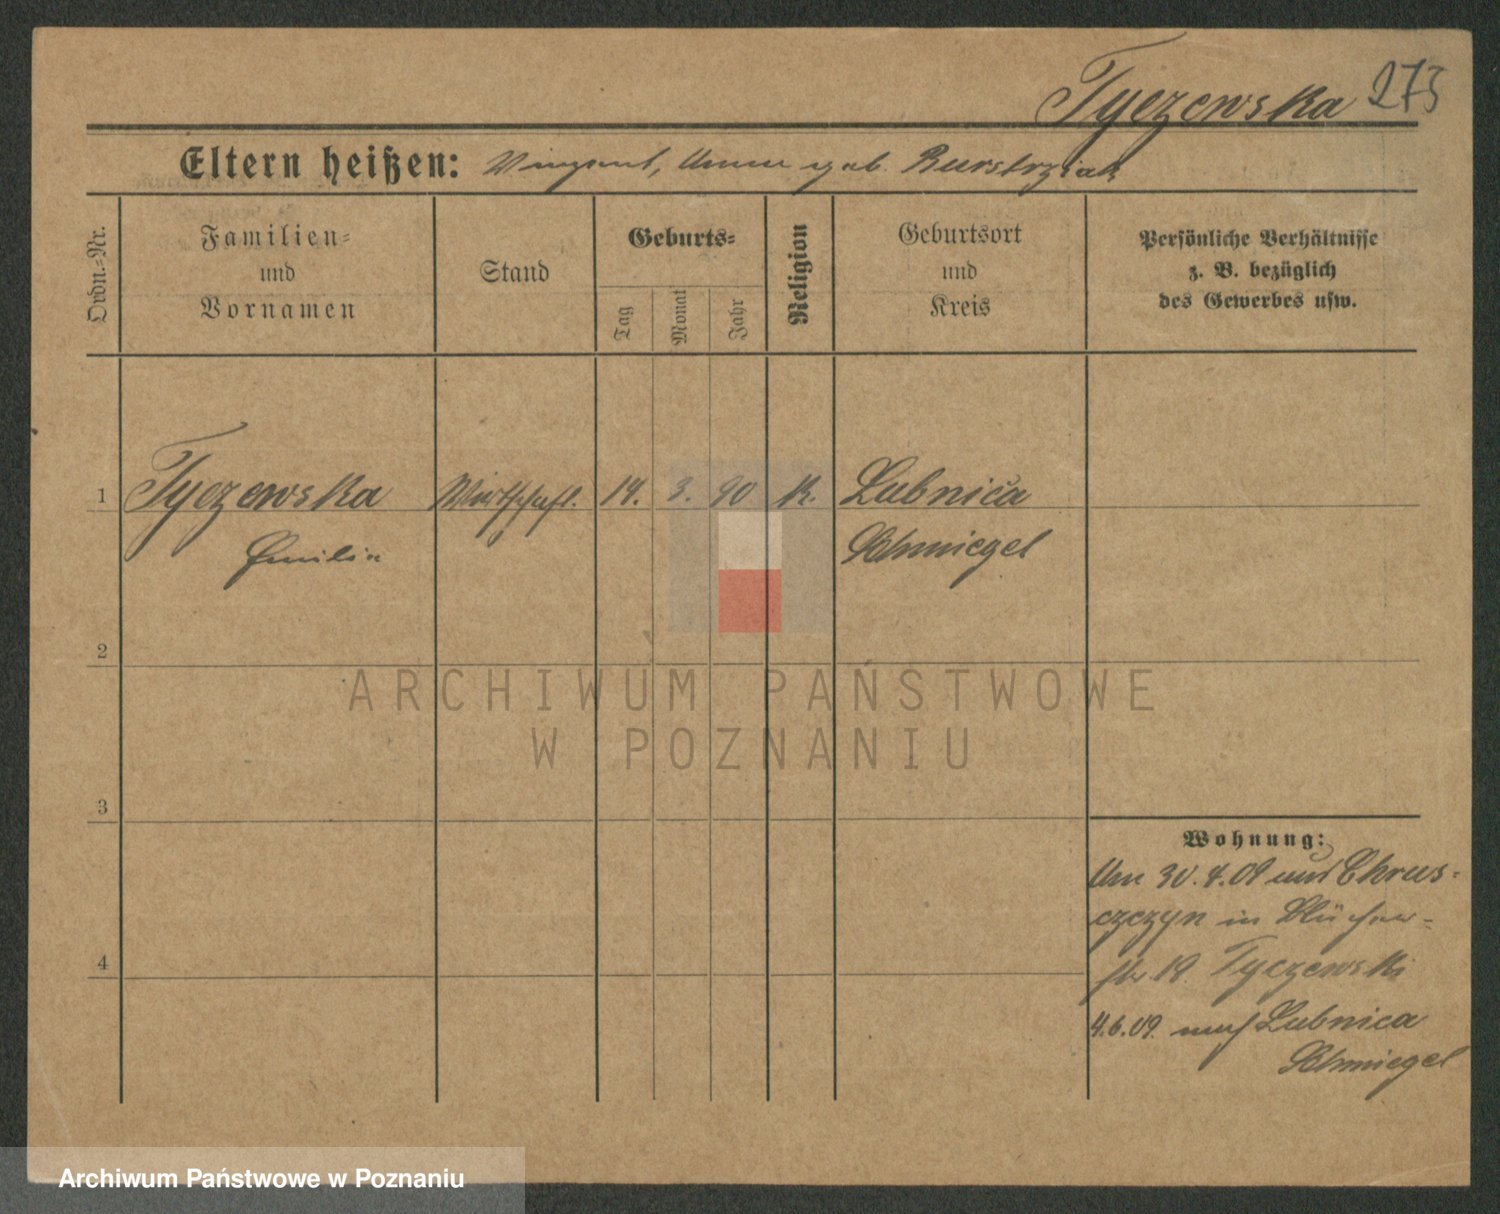 Tyczewska 273
Eltern heißen: Vinzent, Anna geb. Rurstrziak
Ordn.-Nr.
Familien-
und
Vornamen
Stand
Geburts-
Tag
Monat
Jahr
Religion
Geburtsort
und
Kreis
Persönliche Verhältnisse
z. B. bezüglich
des Gewerbes usw.
1 Tyczewska Wirtschaft. 14. 3. 90 K. Lubnica
Emilia Schmiegel
2
3
4
Wohnung:
Am 30.4.09 aus Chrus-
czczyn in Blücher-
str. 19. Tyczewski
4.6.09. nach Lubnica
Schmiegel
ARCHIWUM PAŃSTWOWE
W POZNANIU
Archiwum Państwowe w Poznaniu